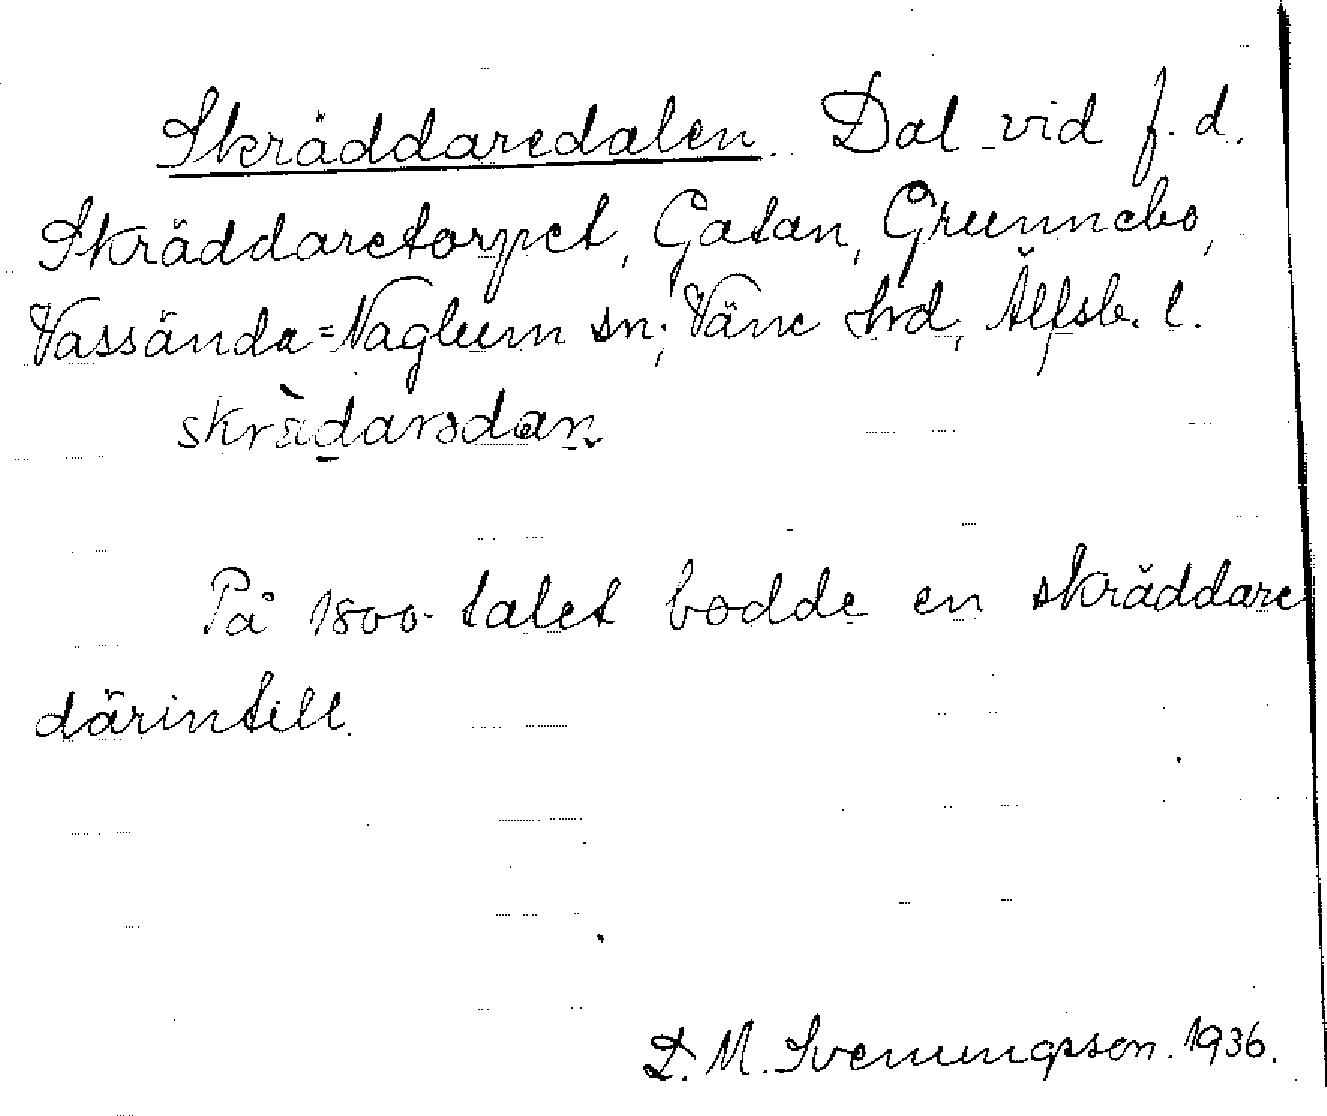 Skräddaredalen. Dal vid f. d.
Skräddaretorpet, Gatan, Grunnebo,
Vassända=Naglum sn; Väne hrd, Älfsb. l.
skrädarədan.
På 1800-talet bodde en skräddare
därintill.
D. M. Svenungsson. 1936.